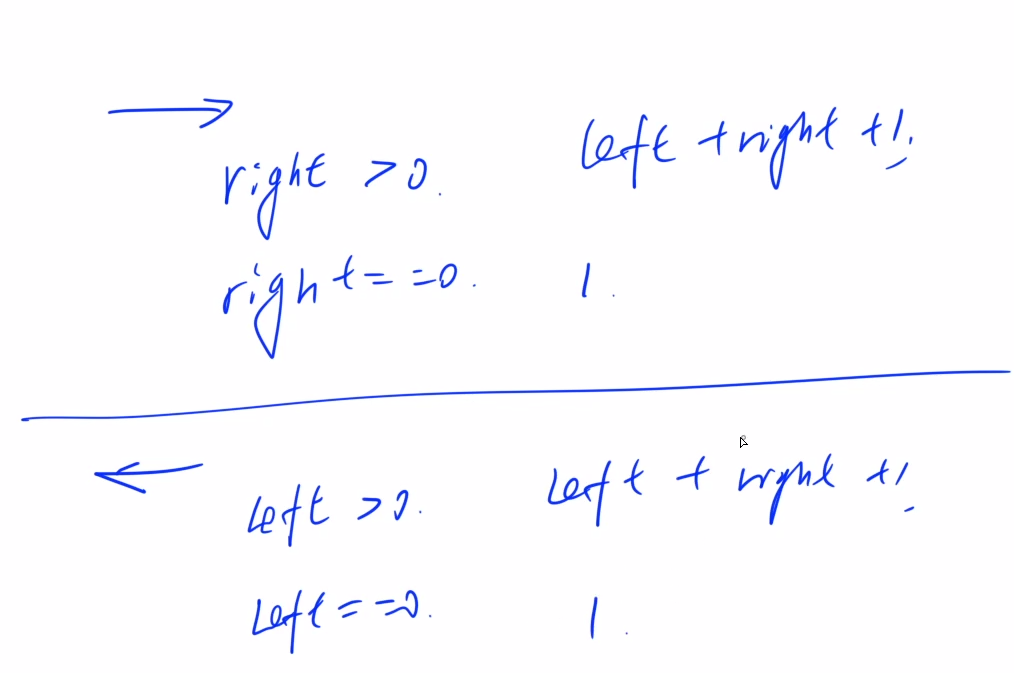 →
right >0. left +right +1.
right==0. 1.
←
left >0. left + right +1.
left==0. 1.